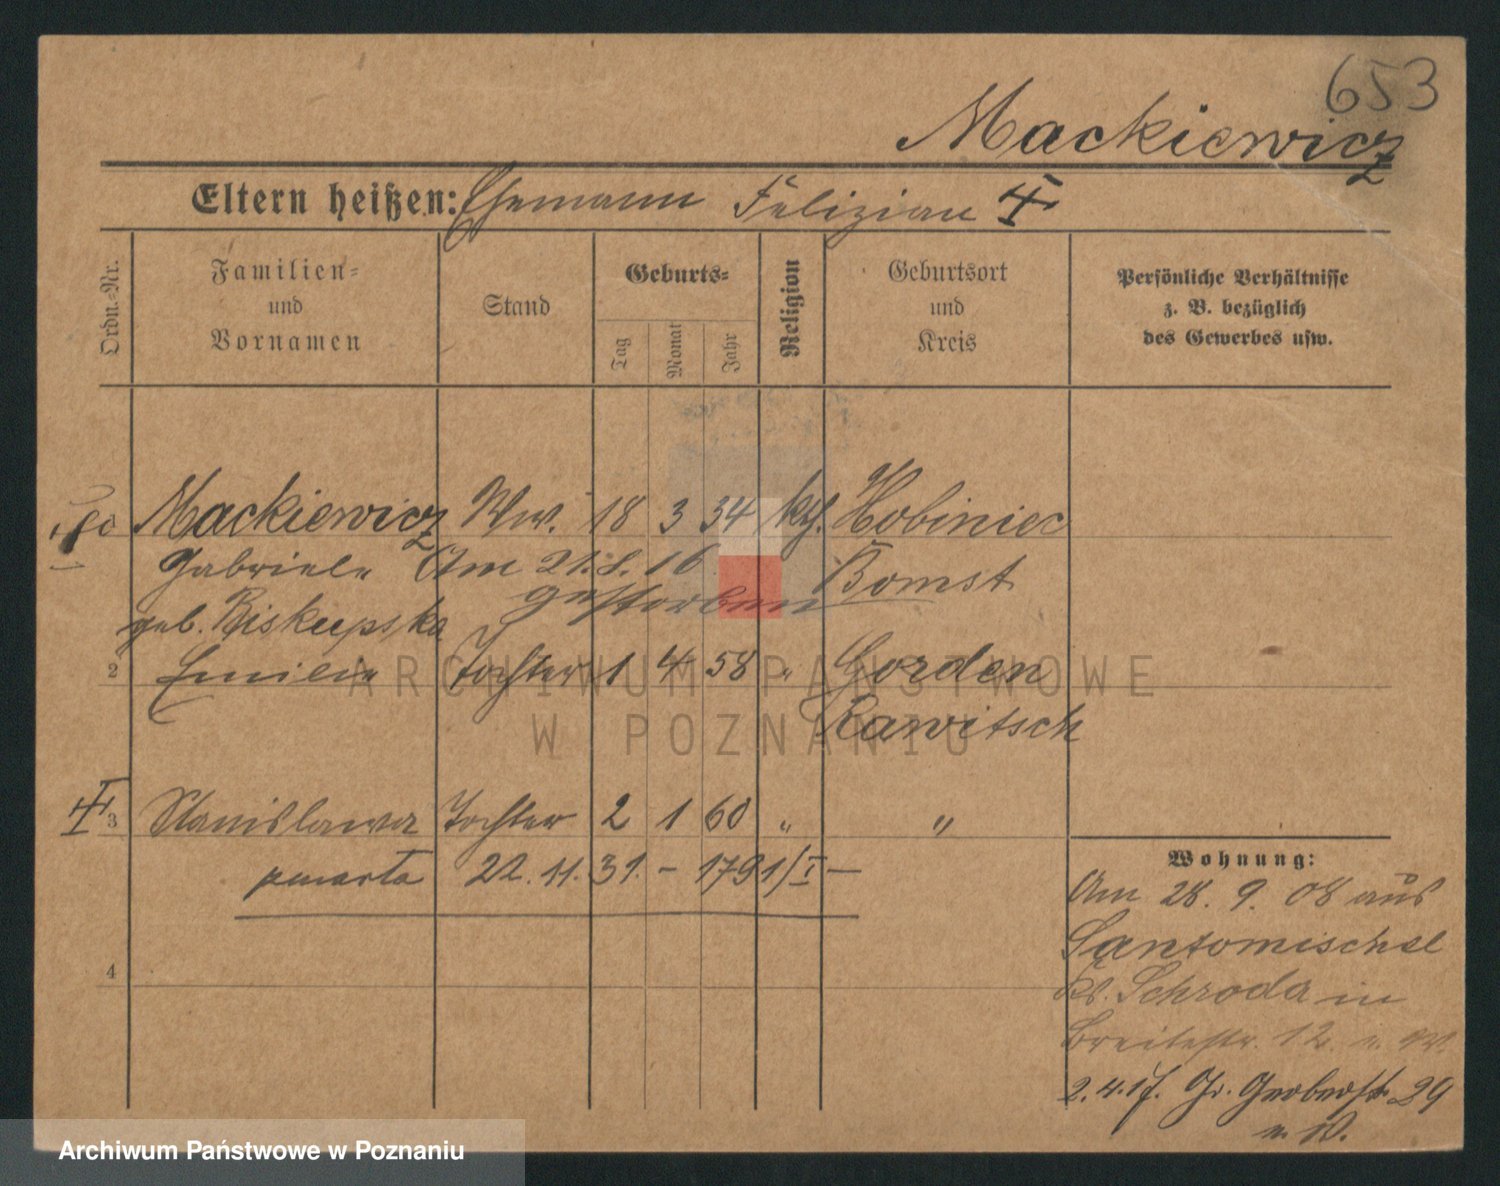 653
Mackiewicz
Eltern heißen: Ehemann Felizian
Ordn.-Nr.
Familien-
und
Vornamen
Stand
Geburts-
Tag
Monat
Jahr
Religion
Geburtsort
und
Kreis
Persönliche Verhältnisse
z. B. bezüglich
des Gewerbes usw.
Mackiewicz Ww. 18 3 34 kth. Hobiniec
Gabriele Am 21.8.16 Bomst
gestorben
geb. Biskupska
2 Emilie Tochter 1 4 58 " Gorden
Rawitsch
3 Stanislawa Tochter 2 1 60 " "
zmarła 22.11.31. - 1791/I -
4
Wohnung:
Am 28. 9. 08 aus
Santomischel
Kr. Schroda in
Breitestr. 12
2.4.17. Gr. Gerberstr. 29
ARCHIWUM PAŃSTWOWE
W POZNANIU
Archiwum Państwowe w Poznaniu